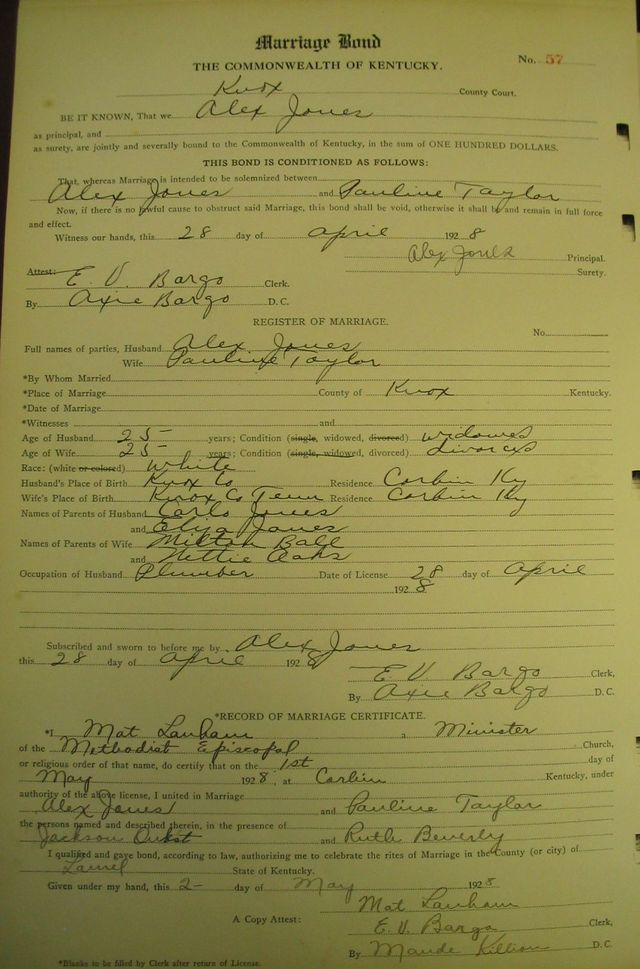 Marriage Bond
THE COMMONWEALTH OF KENTUCKY. No. 57
Knox County Court.
BE IT KNOWN, That we Alex Jones
as principal, and
as surety, are jointly and severally bound to the Commonwealth of Kentucky, in the sum of ONE HUNDRED DOLLARS.
THIS BOND IS CONDITIONED AS FOLLOWS:
That, whereas Marriage is intended to be solemnized between
Alex Jones and Pauline Taylor
Now, if there is no lawful cause to obstruct said Marriage, this bond shall be void, otherwise it shall be and remain in full force
and effect.
Witness our hands, this 28 day of April 1928
Alex Jones Principal.
Surety.
Attest: E. V. Bargo Clerk.
By Axie Bargo D. C.
REGISTER OF MARRIAGE.
No.
Full names of parties, Husband Alex Jones
Wife Pauline Taylor
*By Whom Married
*Place of Marriage County of Knox Kentucky.
*Date of Marriage
*Witnesses and
Age of Husband 25 years; Condition (single, widowed, divorced) widowed
Age of Wife 25 years; Condition (single, widowed, divorced) Divorced
Race: (white or colored) White
Husband's Place of Birth Knox Co Residence Corbin Ky
Wife's Place of Birth Knox Co Tenn Residence Corbin Ky
Names of Parents of Husband Carlo Jones
and Eliza Jones
Names of Parents of Wife Milton Ball
and Nettie Oaks
Occupation of Husband Plumber Date of License 28 day of April
1928
Subscribed and sworn to before me by Alex Jones
this 28 day of April 1928
E. V. Bargo Clerk,
By Axie Bargo D. C.
*RECORD OF MARRIAGE CERTIFICATE.
*I Mat Lanham a Minister
of the Methodist Episcopal Church,
or religious order of that name, do certify that on the 1st day of
May 1928, at Corbin Kentucky, under
authority of the above license, I united in Marriage
Alex Jones and Pauline Taylor
the persons named and described therein, in the presence of
Jackson and Ruth Beverly
I qualified and gave bond, according to law, authorizing me to celebrate the rites of Marriage in the County (or city) of
Laurel State of Kentucky.
Given under my hand, this 2- day of May 1928
Mat Lanham
A Copy Attest: E. V. Bargo Clerk,
By Maude Killion D. C.
*Blanks to be filled by Clerk after return of License.